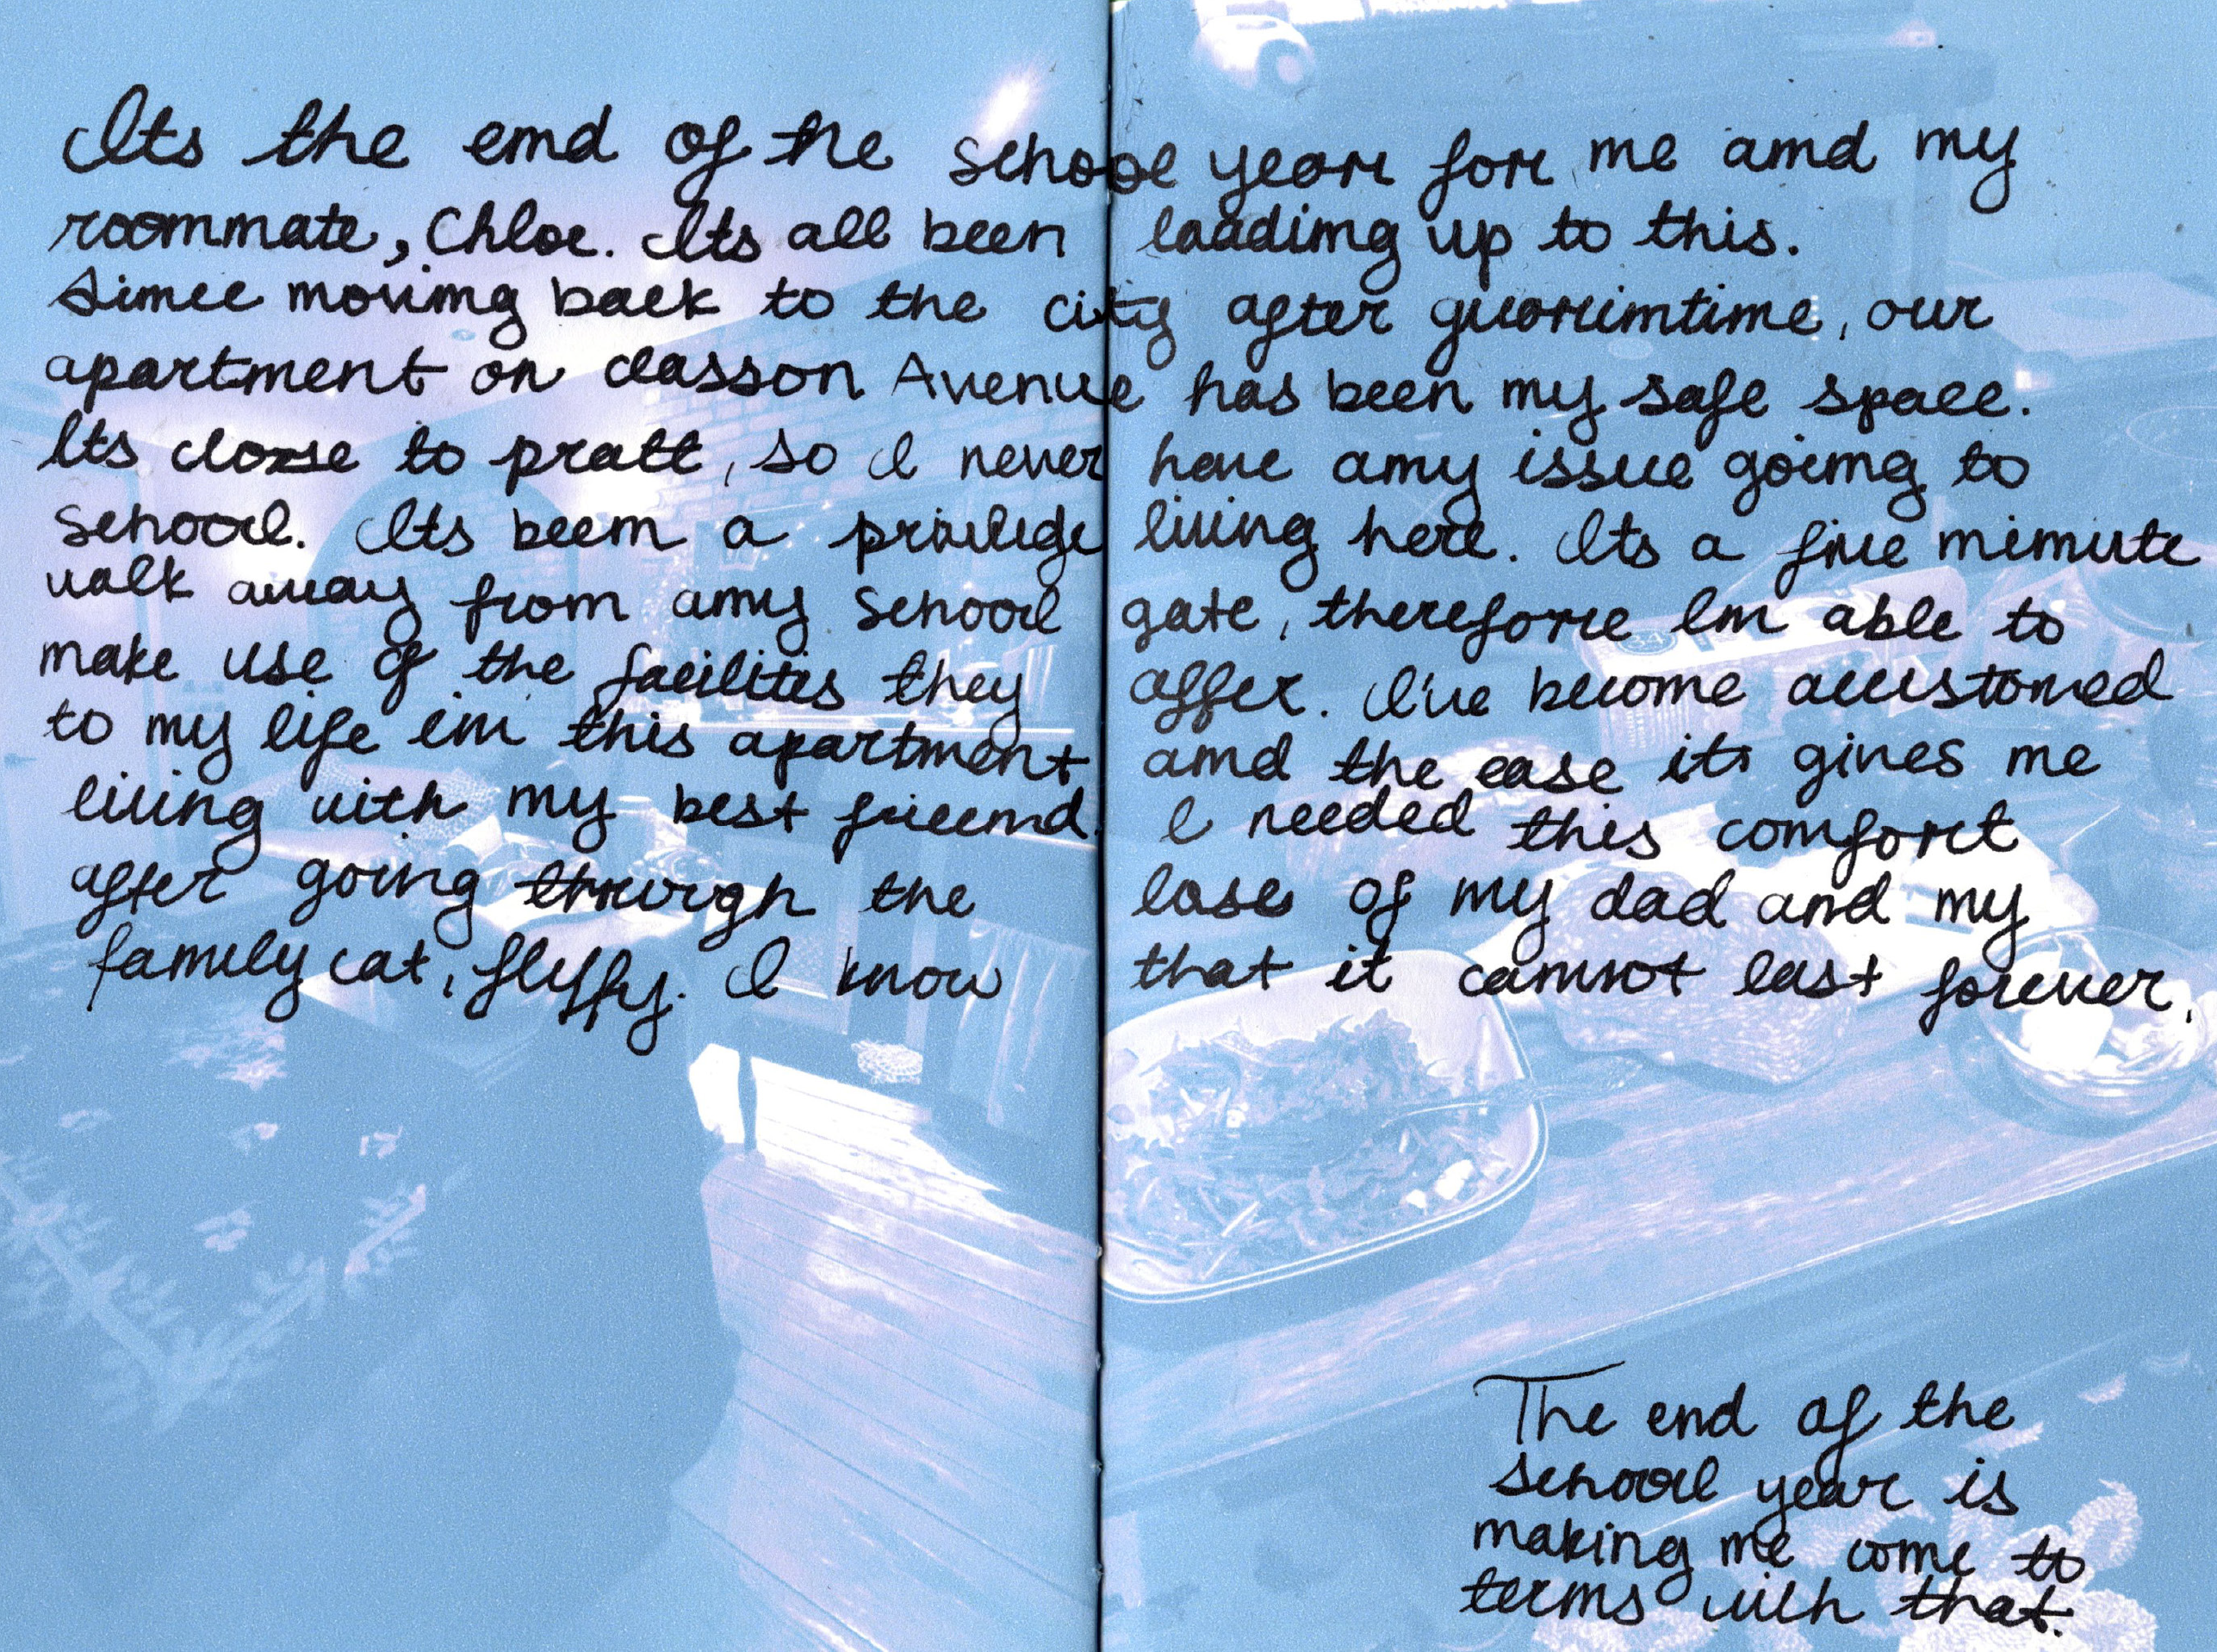 Its the end of the school year for me and my
roommate, Chloe. Its all been leading up to this.
Since moving back to the city after quarintine, our
apartment on classon Avenue has been my safe space.
Its close to pratt, so I never have any issue going to
school. Its been a privilege living here. Its a five minute
walk away from any school gate, therefore Im able to
make use of the facilites they offer. I've become accustomed
to my life in this apartment and the ease it gives me
living with my best friend. I needed this comfort
after going through the loss of my dad and my
family cat, fluffy. I know that it cannot last forever.
The end of the
school year is
making me come to
terms with that.